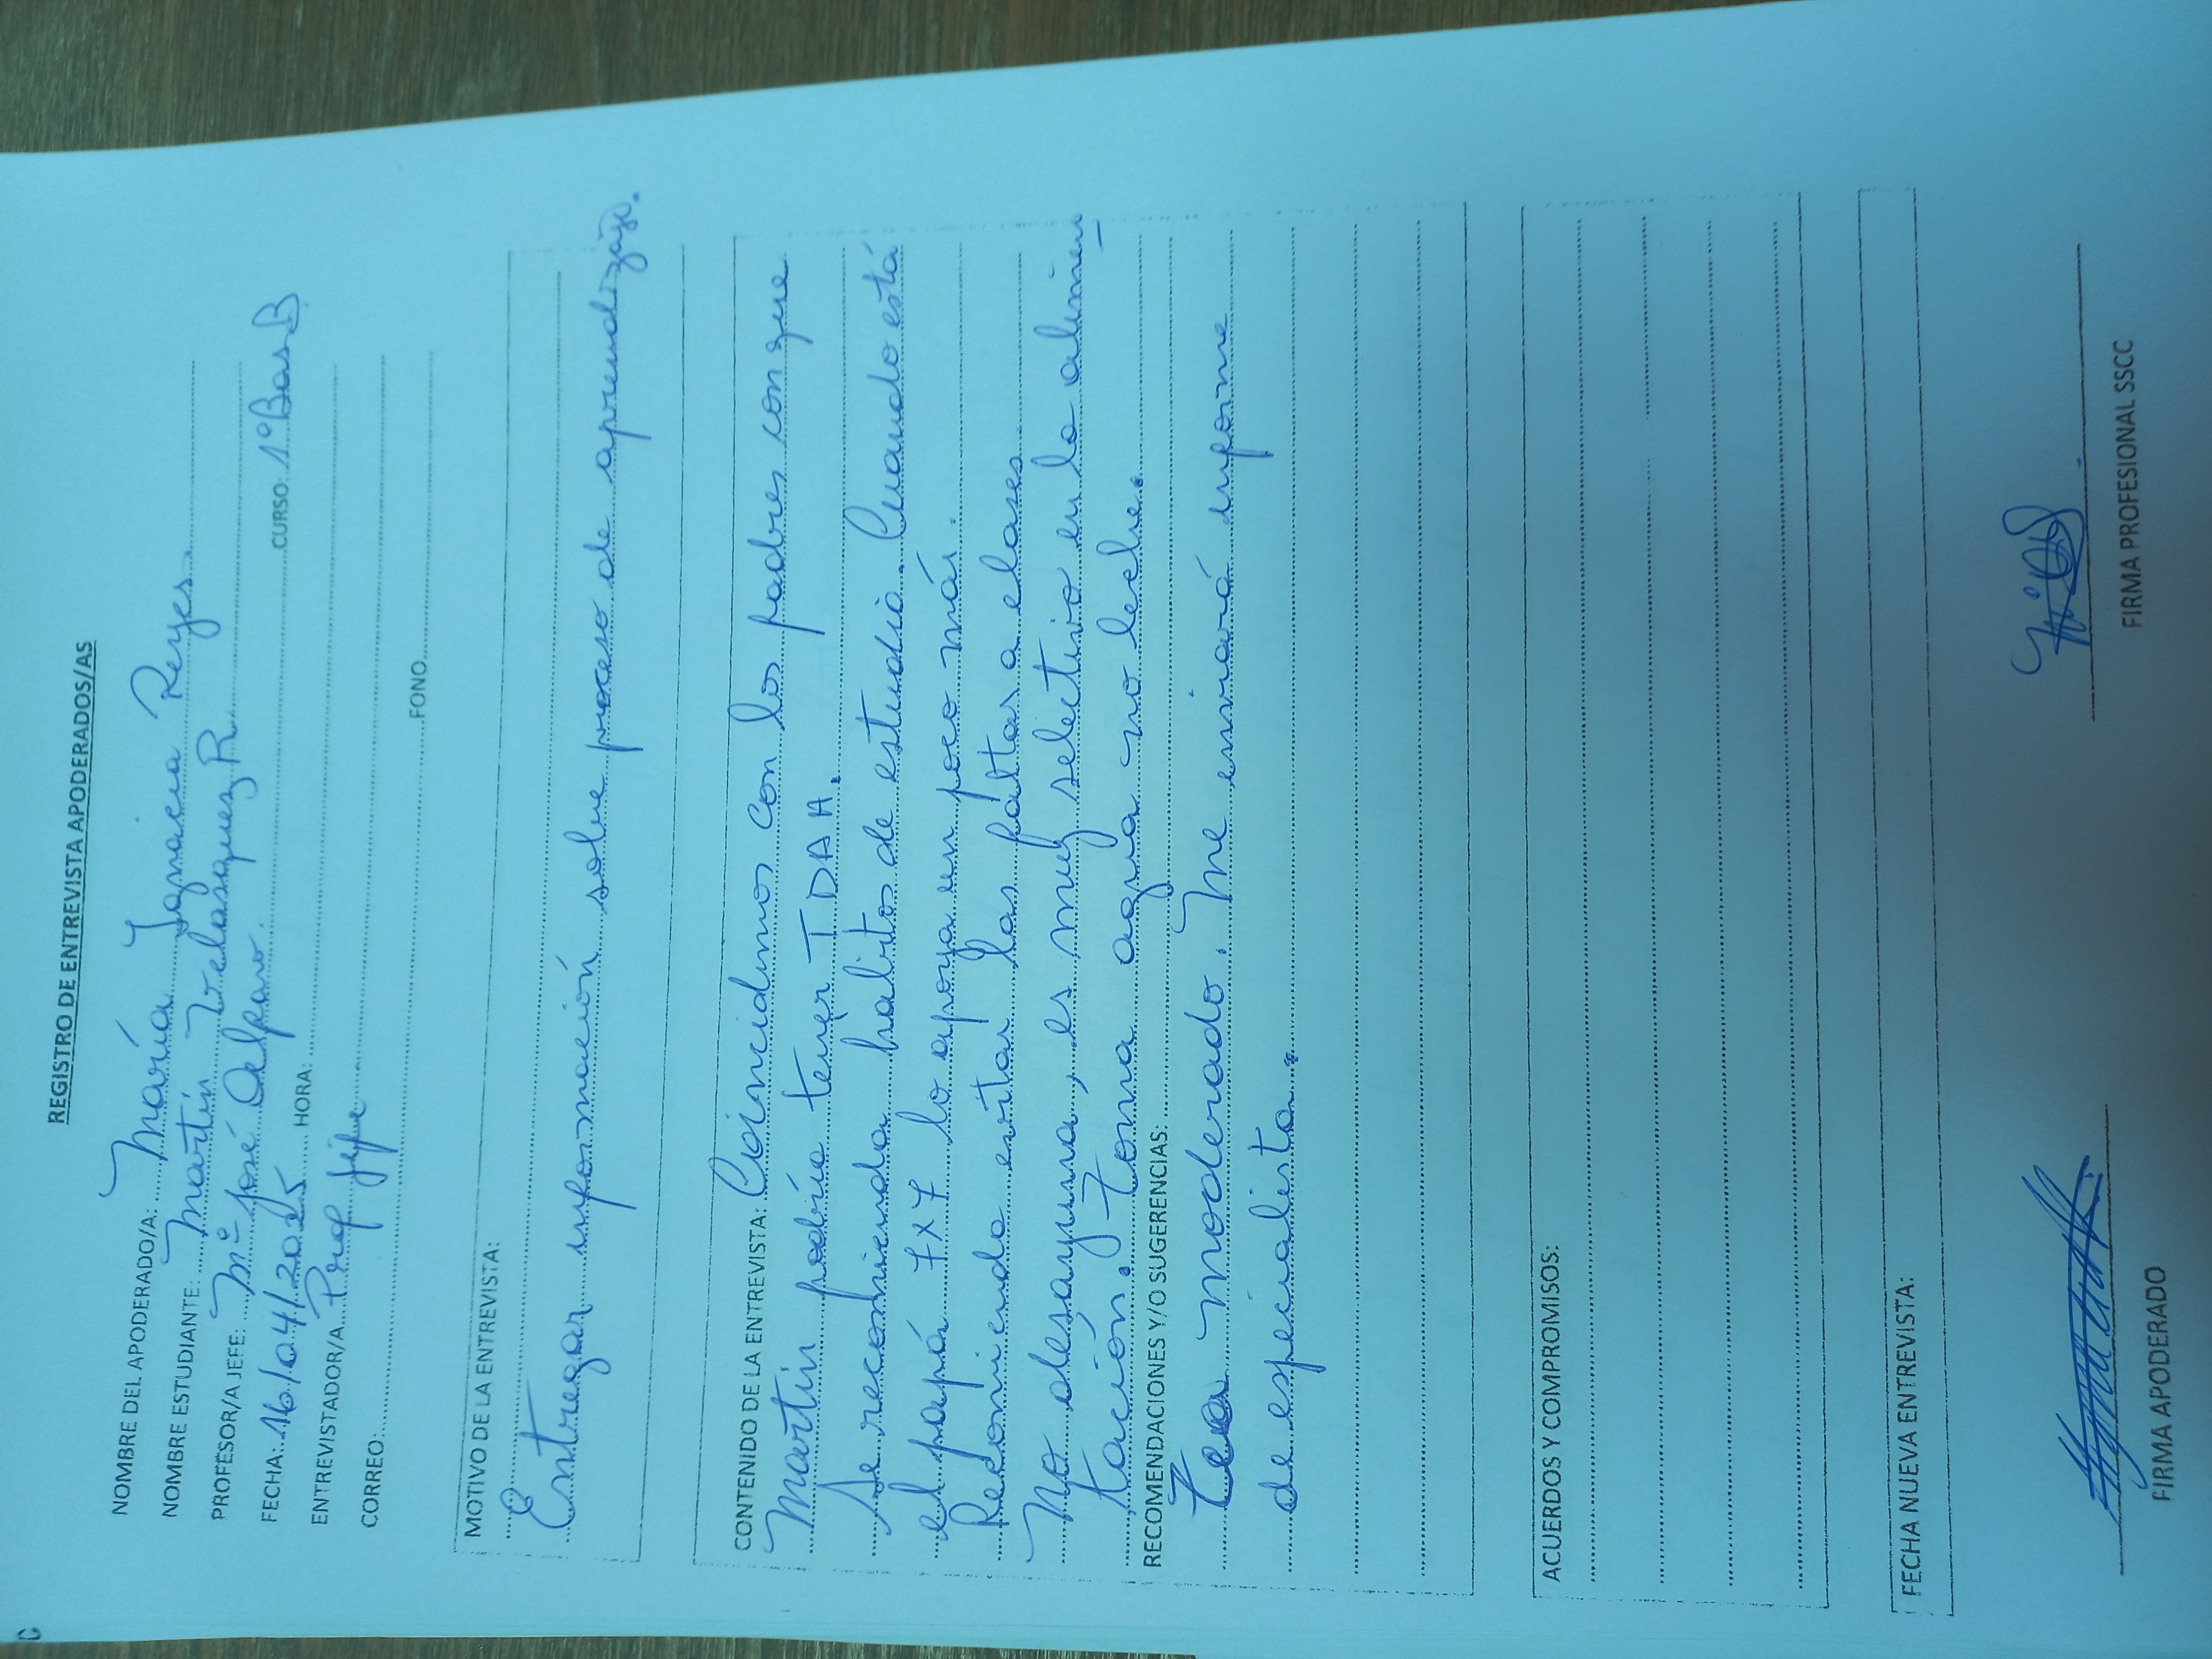 REGISTRO DE ENTREVISTA APODERADOS/AS
NOMBRE DEL APODERADO/A: María Ignacia Reyes
NOMBRE ESTUDIANTE: Martín Velásquez R.
PROFESOR/A JEFE: Mª José Alfaro. CURSO: 1º Bas B
FECHA: 16/04/2025 HORA:
ENTREVISTADOR/A Prof Jefe
CORREO: FONO
MOTIVO DE LA ENTREVISTA:
Entregar información sobre proceso de aprendizaje.
CONTENIDO DE LA ENTREVISTA: Coincidimos con los padres con que
Martín podría tener TDAH.
Se recomienda hábitos de estudio. Cuando está
el papá 7x7 lo apoya un poco más.
Recomiendo evitar las faltas a clases.
No desayuna, es muy selectivo en la alimen
tación. Toma agua no leche.
RECOMENDACIONES Y/O SUGERENCIAS:
Tea moderado. Me enviará informe
de especialista.
ACUERDOS Y COMPROMISOS:
FECHA NUEVA ENTREVISTA:
FIRMA APODERADO FIRMA PROFESIONAL SSCC